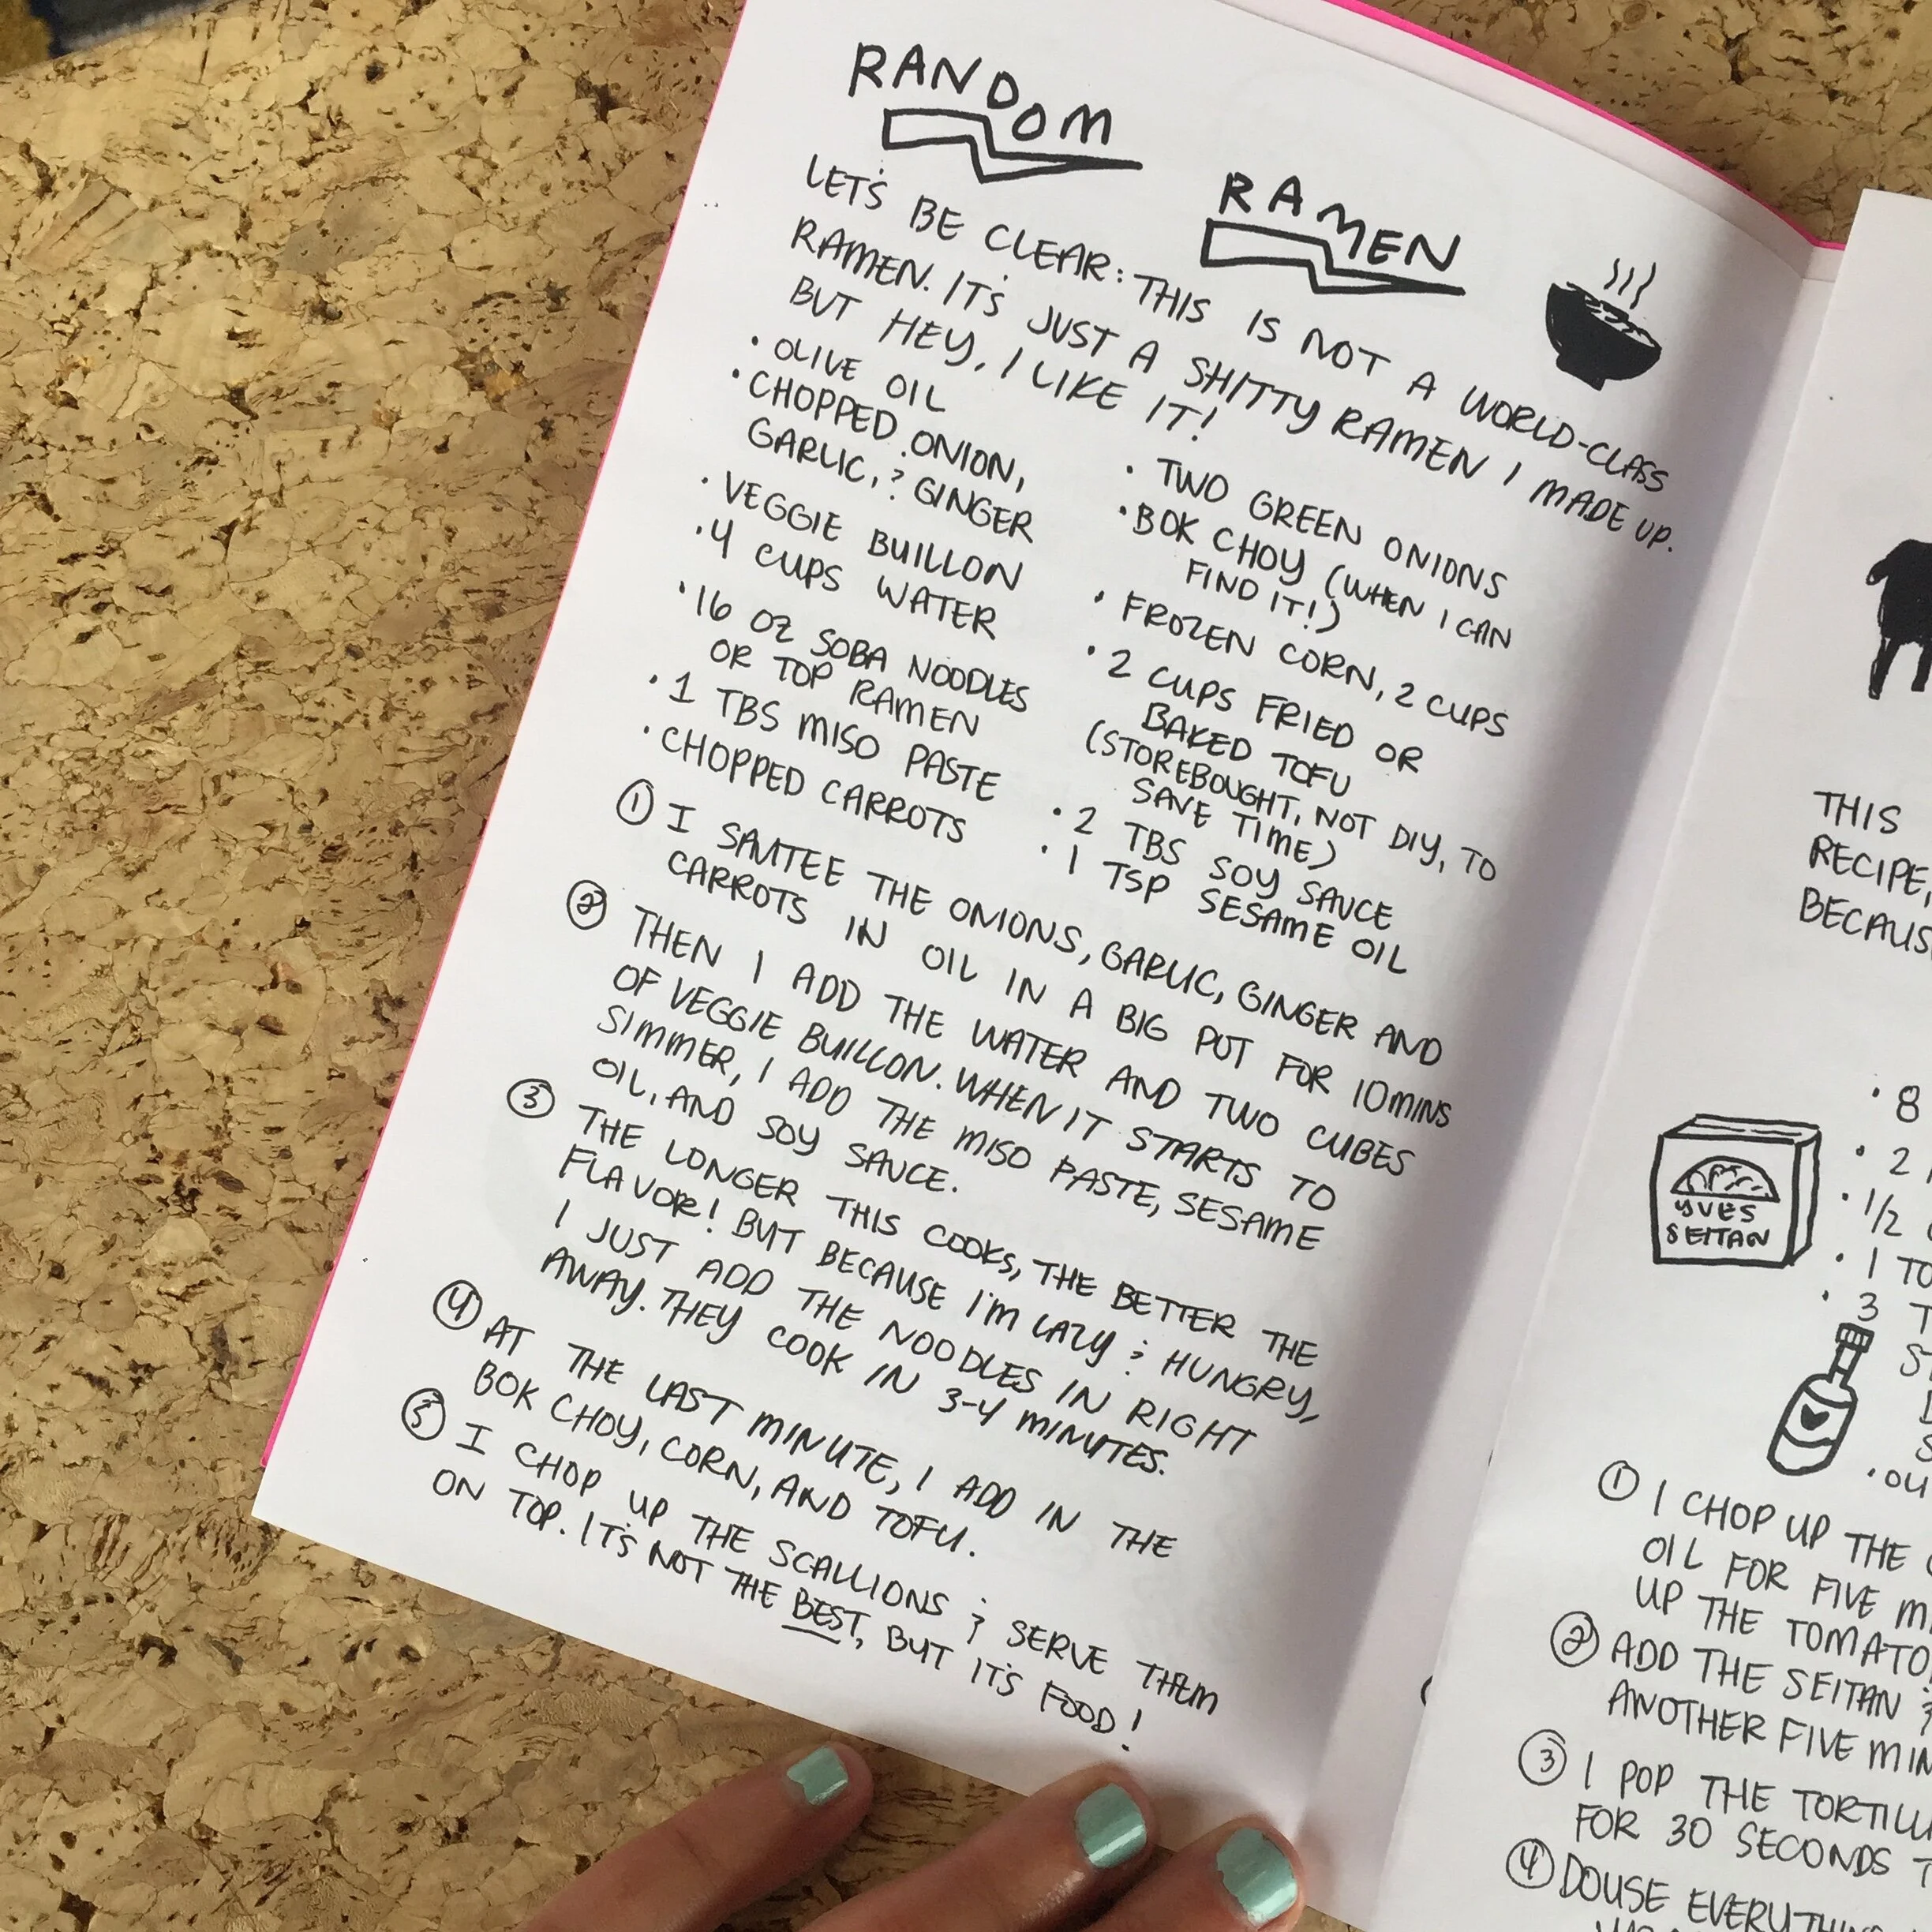 RANDOM
RAMEN
LET'S BE CLEAR: THIS IS NOT A WORLD-CLASS
RAMEN. IT'S JUST A SHITTY RAMEN I MADE UP.
BUT HEY, I LIKE IT!
• OLIVE OIL
• CHOPPED ONION,
GARLIC, & GINGER
• VEGGIE BUILLON
• 4 CUPS WATER
• 16 OZ SOBA NOODLES
OR TOP RAMEN
• 1 TBS MISO PASTE
• CHOPPED CARROTS
• TWO GREEN ONIONS
• BOK CHOY (WHEN I CAN
FIND IT!)
• FROZEN CORN, 2 CUPS
• 2 CUPS FRIED OR
BAKED TOFU
(STOREBOUGHT, NOT DIY, TO
SAVE TIME)
• 2 TBS SOY SAUCE
• 1 TSP SESAME OIL
① I SAUTEE THE ONIONS, GARLIC, GINGER AND
CARROTS IN OIL IN A BIG POT FOR 10 MINS
② THEN I ADD THE WATER AND TWO CUBES
OF VEGGIE BUILLON. WHEN IT STARTS TO
SIMMER, I ADD THE MISO PASTE, SESAME
OIL, AND SOY SAUCE.
③ THE LONGER THIS COOKS, THE BETTER THE
FLAVOR! BUT BECAUSE I'M LAZY & HUNGRY,
I JUST ADD THE NOODLES IN RIGHT
AWAY. THEY COOK IN 3-4 MINUTES.
④ AT THE LAST MINUTE, I ADD IN THE
BOK CHOY, CORN, AND TOFU.
⑤ I CHOP UP THE SCALLIONS & SERVE THEM
ON TOP. IT'S NOT THE BEST, BUT IT'S FOOD!
THIS
RECIPE,
BECAUS
• 8
• 2
• 1/2
• 1 TO
• 3 T
YVES
SEITAN
• OU
① I CHOP UP THE
OIL FOR FIVE M
UP THE TOMATO
② ADD THE SEITAN &
ANOTHER FIVE MIN
③ I POP THE TORTILL
FOR 30 SECONDS T
④ DOUSE EVERYTHIN